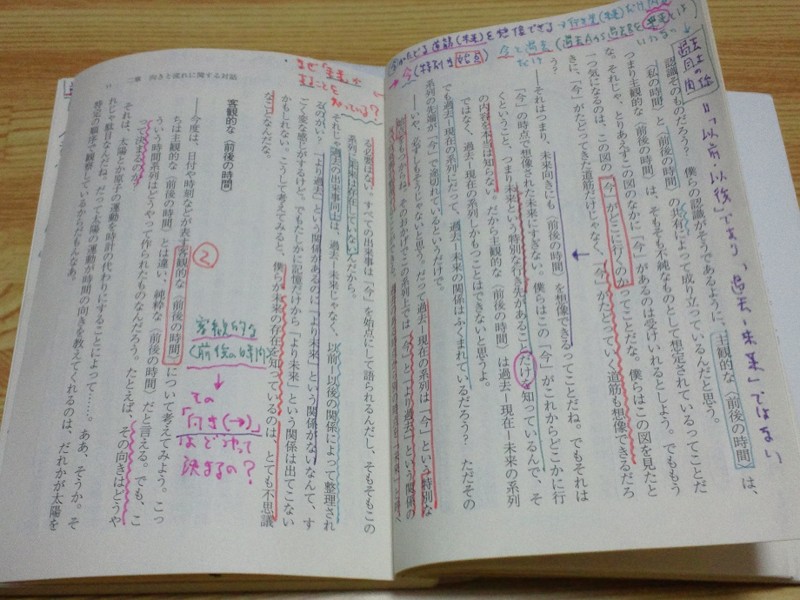 認識そのものだろう? 僕らの認識がそうであるように、主観的な〈前後の時間〉は、
〈私の時間〉と〈前後の時間〉の共有によって成り立っているんだと思う。
つまり主観的な〈前後の時間〉は、そもそも不純なものとして想定されているってことだ
な。それじゃ、とりあえずこの図のなかに「今」があるのは受けいれるとしよう。でももう
一つ気になるのは、この図の「今」がどこに行くのかってことだな。僕らはこの図を見たと
きに、「今」がたどってきた道筋だけじゃなく、「今」がたどっていく道筋も想像できるだろ
う?
──それはつまり、未来向きにも〈前後の時間〉を想像できるってことだね。でもそれは
「今」の時点で想像された未来にすぎない。僕らはこの「今」がこれからどこかに行
くということ、つまり未来という特別な行き先があることだけを知っているんで、そ
の内容を本当は知らない。だから主観的な〈前後の時間〉は過去─現在─未来の系列
ではなく、過去─現在の系列しかもつことはできないと思うよ。
でも過去─現在の系列にだって、過去─未来の関係はふくまれているだろう? ただその
系列の先端が「今」で途切れているというだけで。
──いや、必ずしもそうじゃないと思う。だって過去─現在の系列は「今」という特別な
る必要はない。すべての出来事は「今」を始点にして語られるんだし、そもそもこの
系列に未来は存在していないんだから。
それじゃ過去の出来事同士は、過去─未来じゃなく、以前─以後の関係によって整理され
るのかい?「より過去」という関係があるのに「より未来」という関係がないなんて、す
ごく変な感じがするけど。でもたしかに記憶だけから「より未来」という関係は出てこない
かもしれない。こうして考えてみると、僕らが未来の存在を知っているのは、とても不思議
なことなんだな。
客観的な〈前後の時間〉
──今度は、日付や時刻などが表す客観的な〈前後の時間〉について考えてみよう。こっ
ちは主観的な〈前後の時間〉とは違い、純粋な〈前後の時間〉だと言える。でも、こ
ういう時間系列はどうやって作られたものなんだろう。たとえば、その向きはどうや
って決まるのか?
それは、太陽とか原子の運動を時計の代わりにすることによって……。ああ、そうか。そ
れじゃ駄目なんだね。だって太陽の運動が時間の向きを教えてくれるのは、だれかが太陽を
二章 向きと流れに関する対話
過去と過去同士の関係
=「以前-以後」であり、「過去-未来」ではない
なぜ「未来」を知っている?
②
客観的な
〈前後の時間〉
↓
その
「向き(→)」
はどうやって
決まるの?